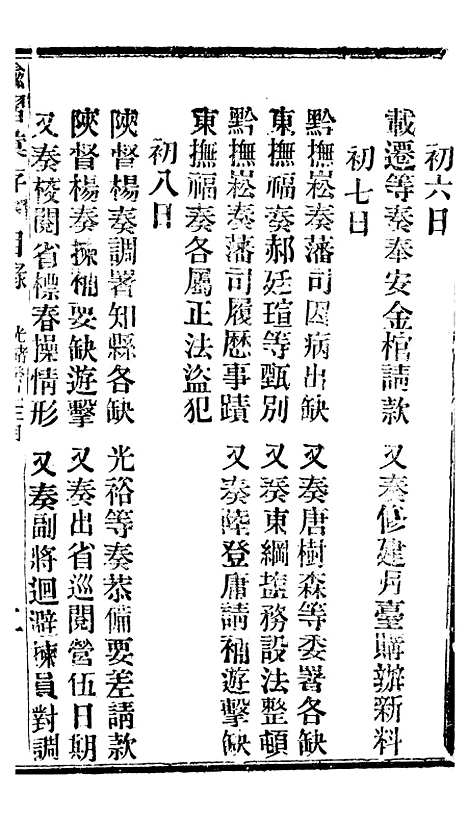 初六日
載遷等奏奉安金棺請款　又奏修建月臺購辦新料
初七日
黔撫崧奏藩司因病出缺　又奏唐樹森等委署各缺
東撫福奏郝廷瑄等甄別　又奏東綱鹽務設法整頓
黔撫崧奏藩司履歷事蹟　又奏陸登庸請補遊擊缺
東撫福奏各屬正法盜犯
初八日
陝督楊奏調署知縣各缺　光裕等奏恭備要差請款
陝督楊奏揀補要缺遊擊　又奏出省巡閱營伍日期
又奏校閱省標春操情形　又奏副將迴避揀員對調
諭摺彙存 目錄 光緒 月